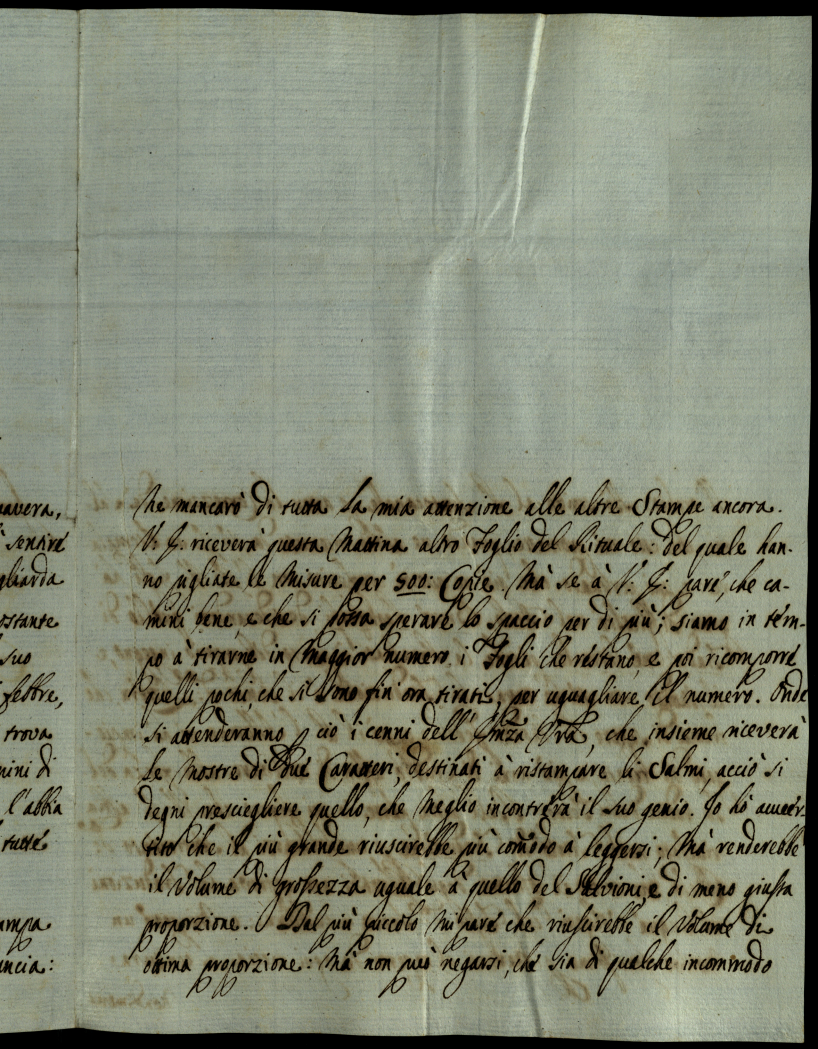 uavera,
sentiré
gliarda
ostante
suo
febbre,
trova
mini di
l'abbia
tutté
ampa
ncia:
Ne mancarò di tutta la mia attenzione alle altre Stampe ancora.
V: J: riceverà questa Mattina altro Foglio del Rituale: del quale han-
no pigliate le Misure per 500: Copie. Mà se à V: J: pare, che ca-
mini bene, e che si possa sperare lo spaccio per di più; siamo in tém-
po à tirarne in Maggior numero i Fogli che réstano, e poi ricomporré
quelli pochi, che si sono fin'ora tirati, per uguagliare il numero. Onde
si attenderanno p ciò i cenni dell' Vrã, che insieme riceverà
le Mostre di Due Caratteri, destinati à ristampare li Salmi, acciò si
degni presciegliere quello, che meglio incontrerà il suo genio. Io hò avver-
tito che il più grande riuscirebbe più com̃odo à leggersi; Mà renderebbe
il Volume di grossezza uguale à quello del Salvioni, e di meno giusta
proporzione. Dal più piccolo mi pare che riuscirebbe il Volume di
ottima proporzione: Mà non può negarsi, ché sia di qualche incommodo